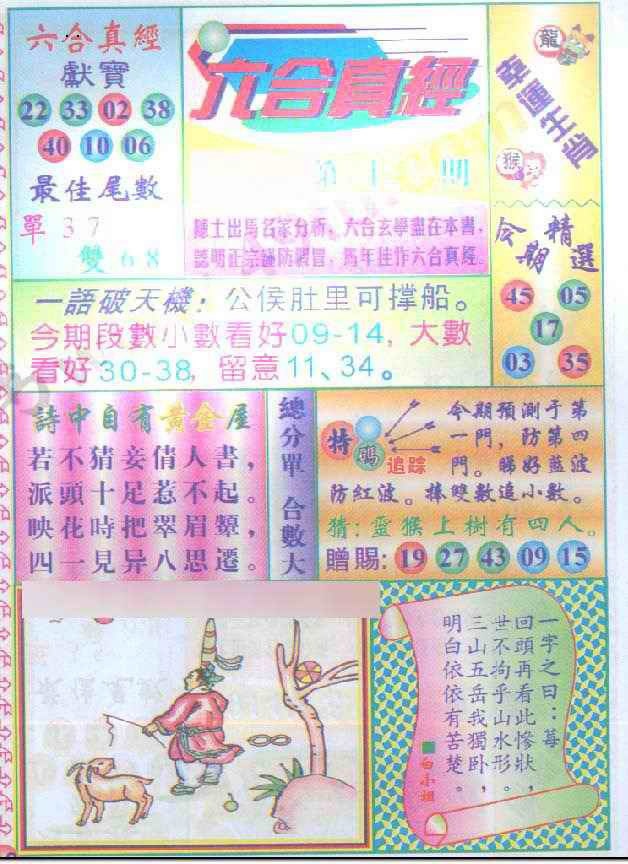 六合真經
獻寶
22 33 02 38
40 10 06
最佳尾數
單 3 7
雙 6 8
六合真經
第 期
龍
幸運生肖
猴
六合玄學盡在本書，
一語破天機：公侯肚里可撑船。
今期段數小數看好09-14，大數
看好30-38，留意11、34。
今期精選
45 05
17
03 35
詩中自有黃金屋
若不猜妾倩人書，
派頭十足惹不起。
映花時把翠眉顰，
四一見异八思遷。
總分單 合數大
特碼追踪
今期預測于第
一門，防第四
門。睇好藍波
防紅波。捧雙數追小數。
猜：靈猴上樹有四人。
贈賜：19 27 43 09 15
一字之曰：莓
回頭再看此慘狀，
世不拘乎山水形，
三山五岳我獨卧，
明白依依有苦楚。
白小姐